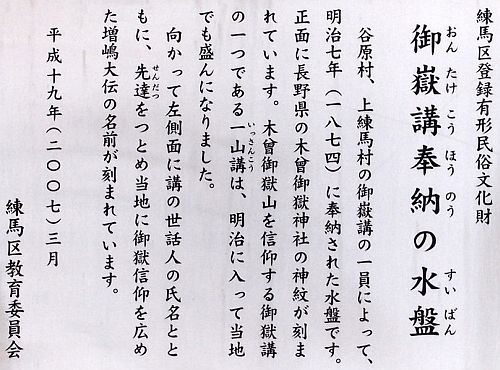 練馬区登録有形民俗文化財
御嶽講奉納の水盤
おんたけこうほうのう すいばん
谷原村、上練馬村の御嶽講の一員によって、
明治七年（一八七四）に奉納された水盤です。
正面に長野県の木曾御嶽神社の神紋が刻ま
れています。木曾御嶽山を信仰する御嶽講
の一つである一山講は、明治に入って当地
いっさんこう
でも盛んになりました。
向かって左側面に講の世話人の氏名とと
もに、先達をつとめ当地に御嶽信仰を広め
せんだつ
た増嶋大伝の名前が刻まれています。
平成十九年（二〇〇七）三月
練馬区教育委員会